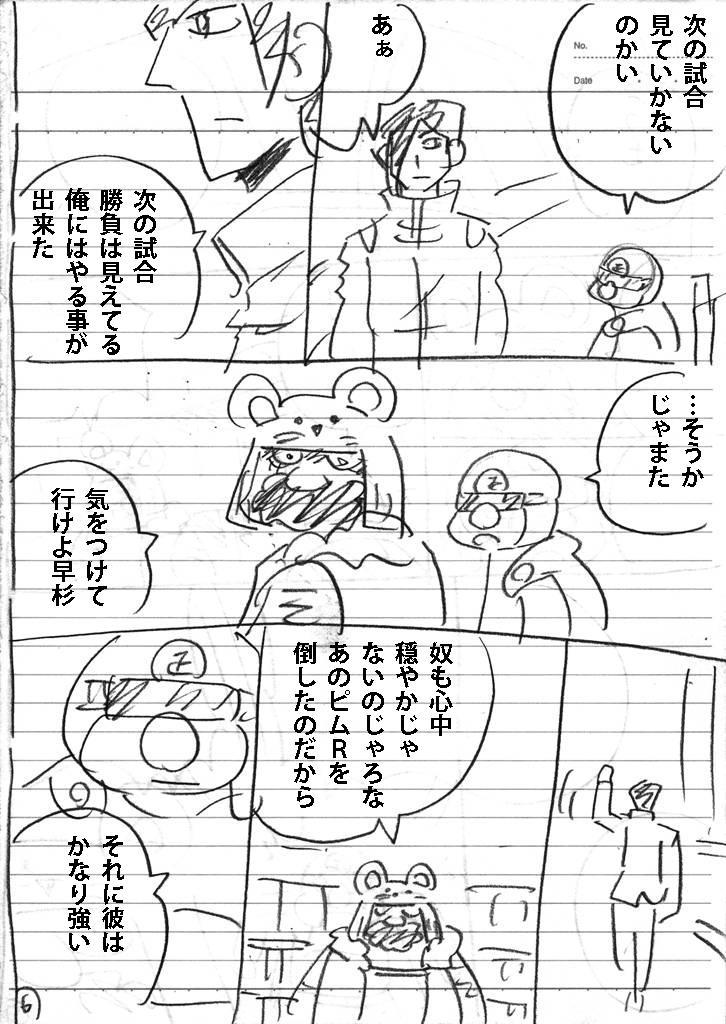 No.
Date
次の試合
見ていかない
のかい
あぁ
次の試合
勝負は見えてる
俺にはやる事が
出来た
…そうか
じゃまた
気をつけて
行けよ早杉
奴も心中
穏やかじゃ
ないのじゃろな
あのピムRを
倒したのだから
それに彼は
かなり強い
6